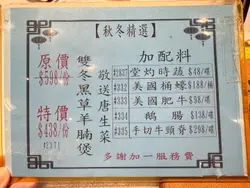 【秋冬精選】
原價
$598/份
特價
$438/份
#2371
雙冬黑草羊腩煲
敬送唐生菜
加配料
#2337 堂灼時蔬 $48/碟
#332 美國桶蠔 $188/碟
#333 美國肥牛 $98/碟
#334 鵝腸 $138/碟
#335 手切牛頸脊 $298/碟
多謝加一服務費